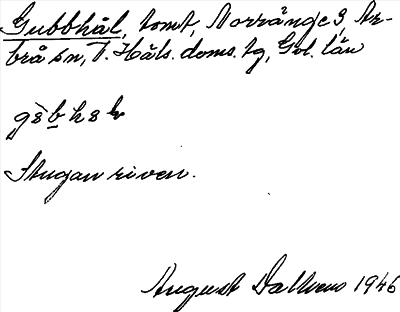 Gubbhål, tomt, Norränge 3, Ar-
brå sn, V. Häls. doms. tg, Gvl. län
Stugan riven.
August Dallmo 1946